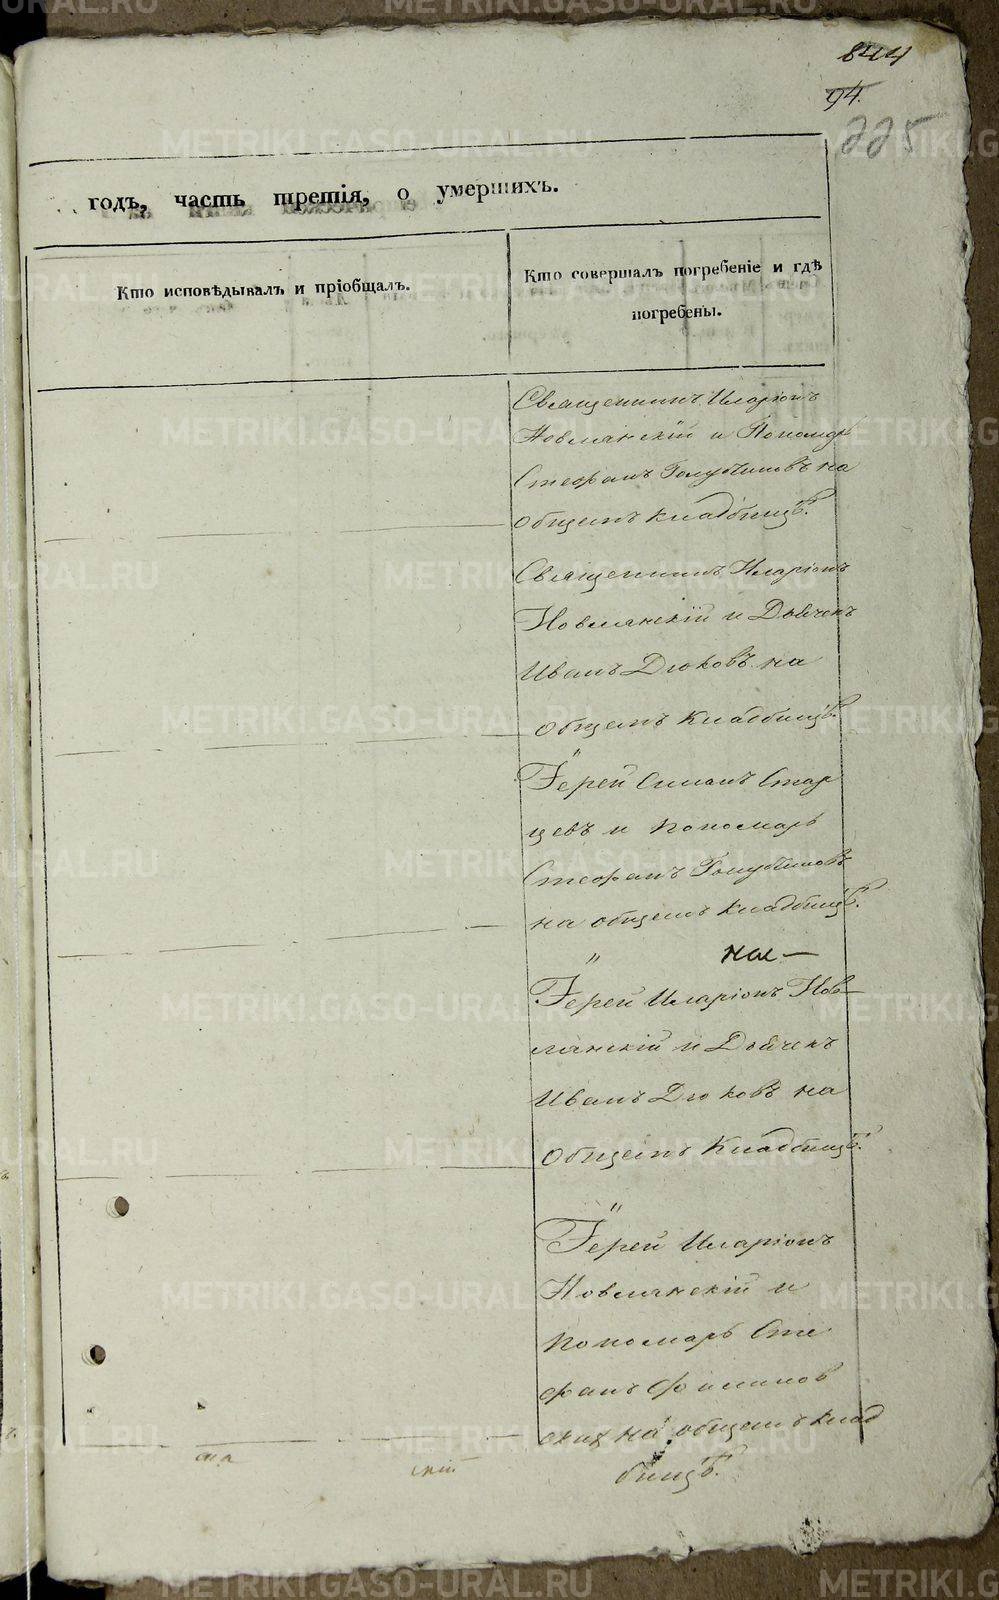 844
94.
225
годъ, часть третія, о умершихъ.
Кто исповѣдывалъ и пріобщалъ.
Кто совершалъ погребеніе и гдѣ
погребены.
Священникъ Иларіонъ
Новлянскій и Пономарь
Стефанъ Голубчиковъ на
общемъ кладбищѣ.
Священникъ Иларіонъ
Новлянскій и Дьячекъ
Иванъ Дюковъ на
общемъ Кладбищѣ.
Іерей Симонъ Стар
цевъ и Пономарь
Стефанъ Голубчиковъ
на общемъ кладбищѣ.
на —
Іерей Иларіонъ Нов-
лянскій и Дьячекъ
Иванъ Дюковъ на
Общемъ Кладбищѣ.
Іерей Иларіонъ
Новлянскій и
Пономарь Сте
фанъ
на общемъ клад
бищѣ.
скій
METRIKI.GASO-URAL.RU